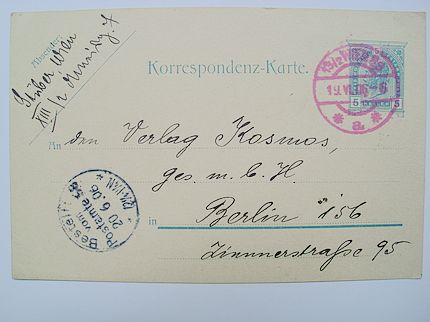 Absender:
Stüber Wien
XIII/2
7
Korrespondenz-Karte.
19.VI.06-6
* a *
5 5
An den Verlag Kosmos,
ges. m. b. H
in Berlin
Zimmerstraße 95
Bestellt
vom
Postamte 58
20 6.06